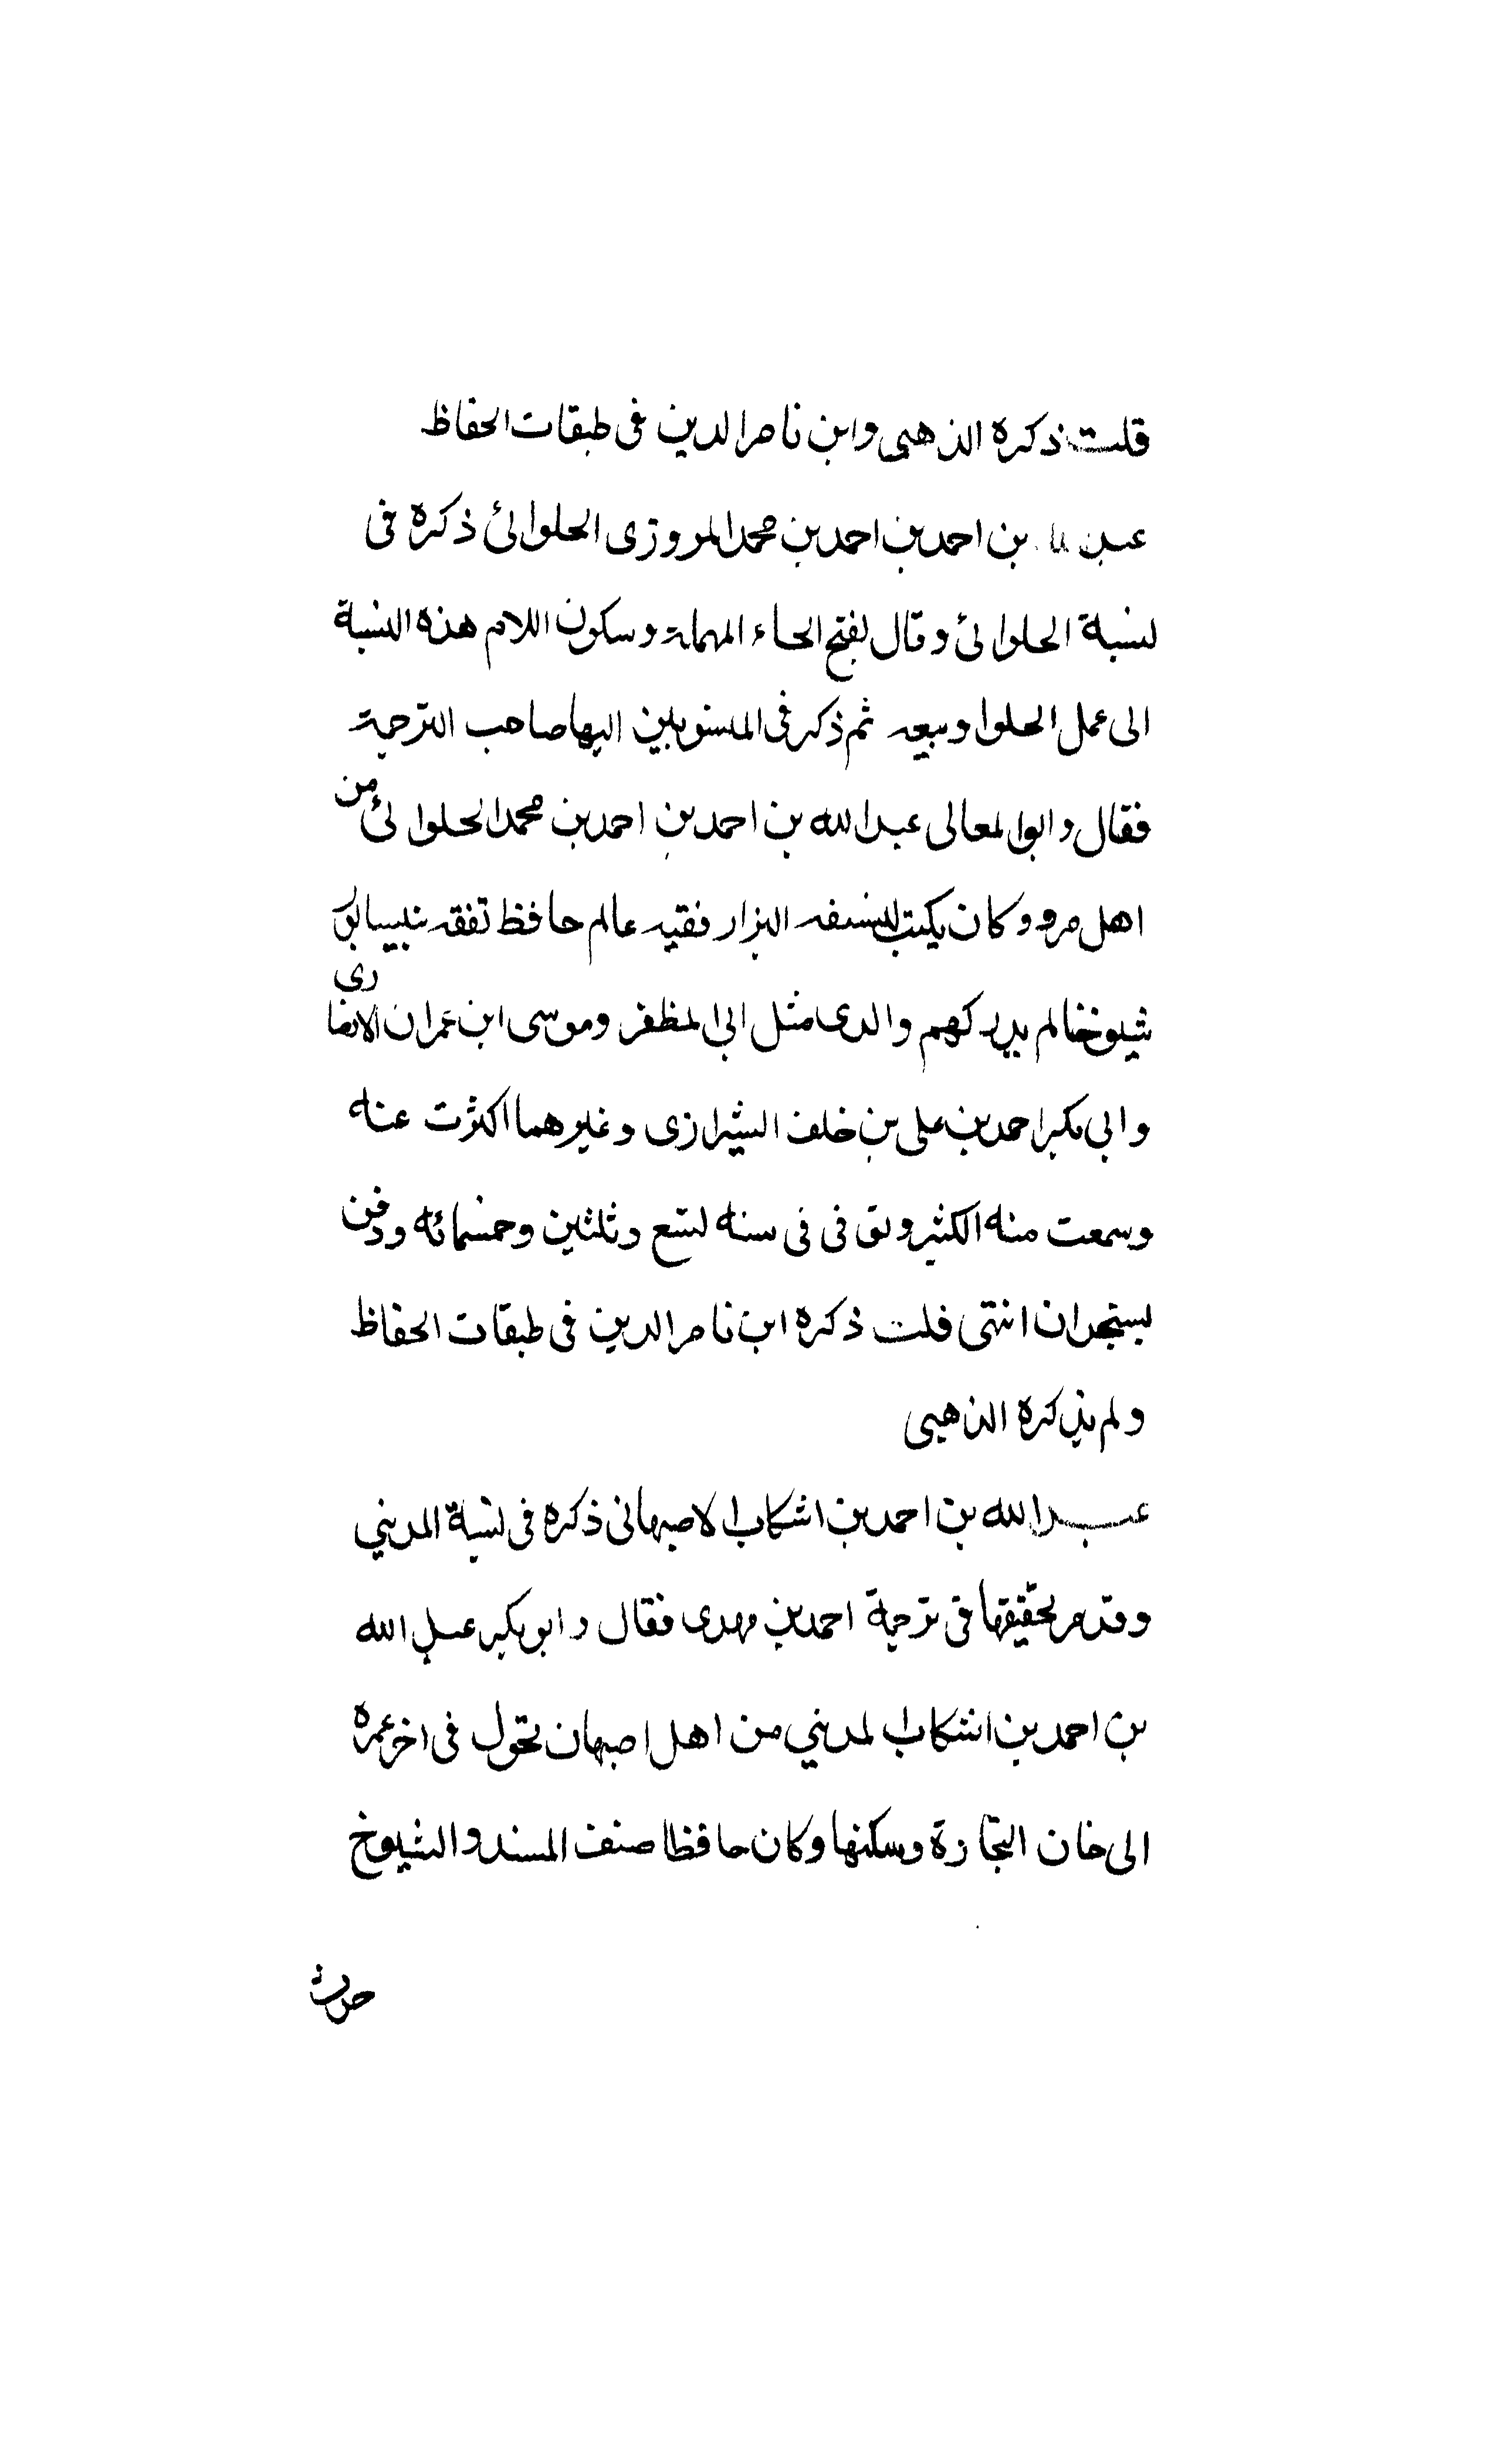 قلت ذكره الذهبى وابن ناصر الدين فى طبقات الحفاظ
عبد الله بن احمد بن احمد بن محمد المروزى الحلوائى ذكره فى
نسبة الحلوائى وقال بفتح الحاء المهملة وسكون اللام هذه النسبة
الى عمل الحلوا وبيعه ثم ذكر فى المنسوبين اليها صاحب الترجمة
فقال وابو المعالى عبد الله بن احمد بن احمد بن محمد الحلوائى من
اهل مرو وكان يكتب لنفسه البزار فقيه عالم حافظ تفقه بنيسابور
شيوخا لم يدركهم والدى مثل ابى المظفر وموسى ابن عمران الانصارى
وابى بكر احمد بن على بن خلف الشيرازى وغيرهما اكثرت عنه
وسمعت منه الكثير وتوفى فى سنه تسع وثلثين وخمسمائه ودفن
بسنجدان انتهى قلت ذكره ابن ناصر الدين فى طبقات الحفاظ
ولم يذكره الذهبى
عبد الله بن احمد بن اشكاب الاصبهانى ذكره فى نسبة المدينى
وقد مر تحقيقها فى ترجمة احمد بن مهدى فقال وابو بكر عبد الله
بن احمد بن اشكاب المدينى من اهل اصبهان تحول فى اخر عمره
الى خان التجارة وسكنها وكان حافظا صنف المسند والشيوخ
حدث